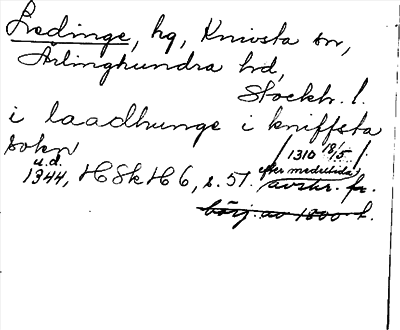 Ledinge, hg, Knivsta sn,
Ärlinghundra hd,
Stockh. l.
i laadhunge i kniffsta
sokn / 1310 18/5 /.
u.d. efter medeltida
1344, HSkH 6, s. 57. avskr. fr.
börj. av 1300-t.